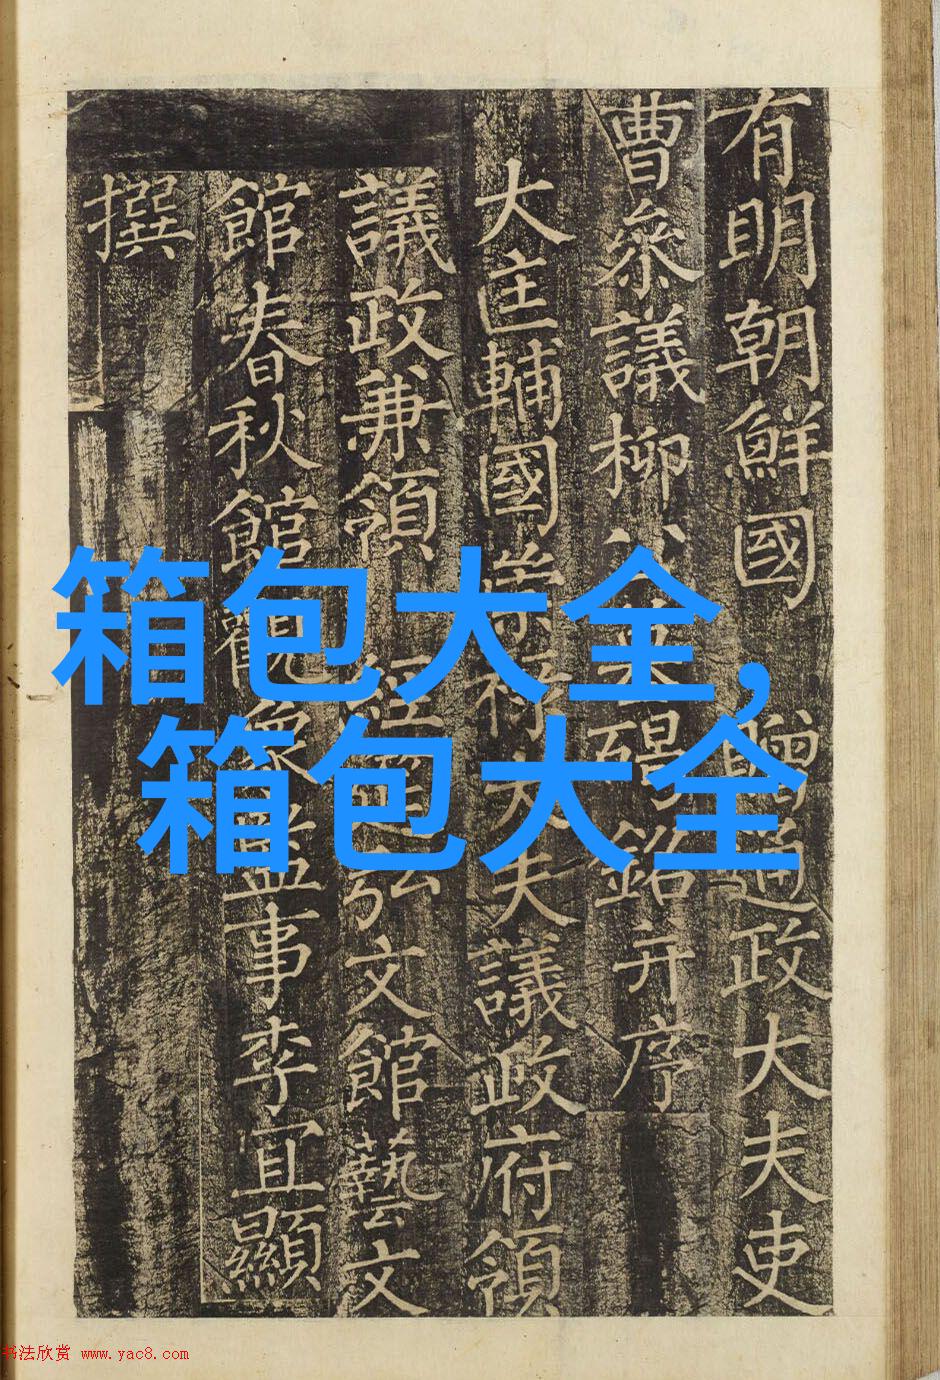 有明朝鮮國 贈通政大夫吏
曹叅議柳公墓碣銘并序
大匡輔國崇祿大夫議政府領
議政兼領 經筵弘文館藝文
館春秋館觀象監事李宜顯
撰
箱包大全,
箱包大全
书法欣赏 www.yac8.com